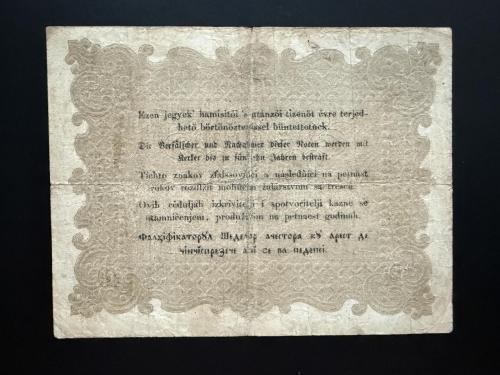 Ezen jegyek' hamisítói 's utánzói tizenöt évre terjed-
hető börtönöztetéssel büntettetnek.
Die Verfälscher und Nachahmer dieser Noten werden mit
Kerker bis zu fünfzehn Jahren bestraft.
Tichto znakov zfalssovňjci a následňjci na petnást
rokov rozšiřit mohúcim žalárstvím sa tresců.
Ovih cédutjah izkrivitelji i spotvoritelji kazne se
utamničenjem, produživim na petnaest godinah.
Фалхіфікаторѹл Шеделор ачестора кѹ арест де
чінчіспрэзече ані се ва педепсі.